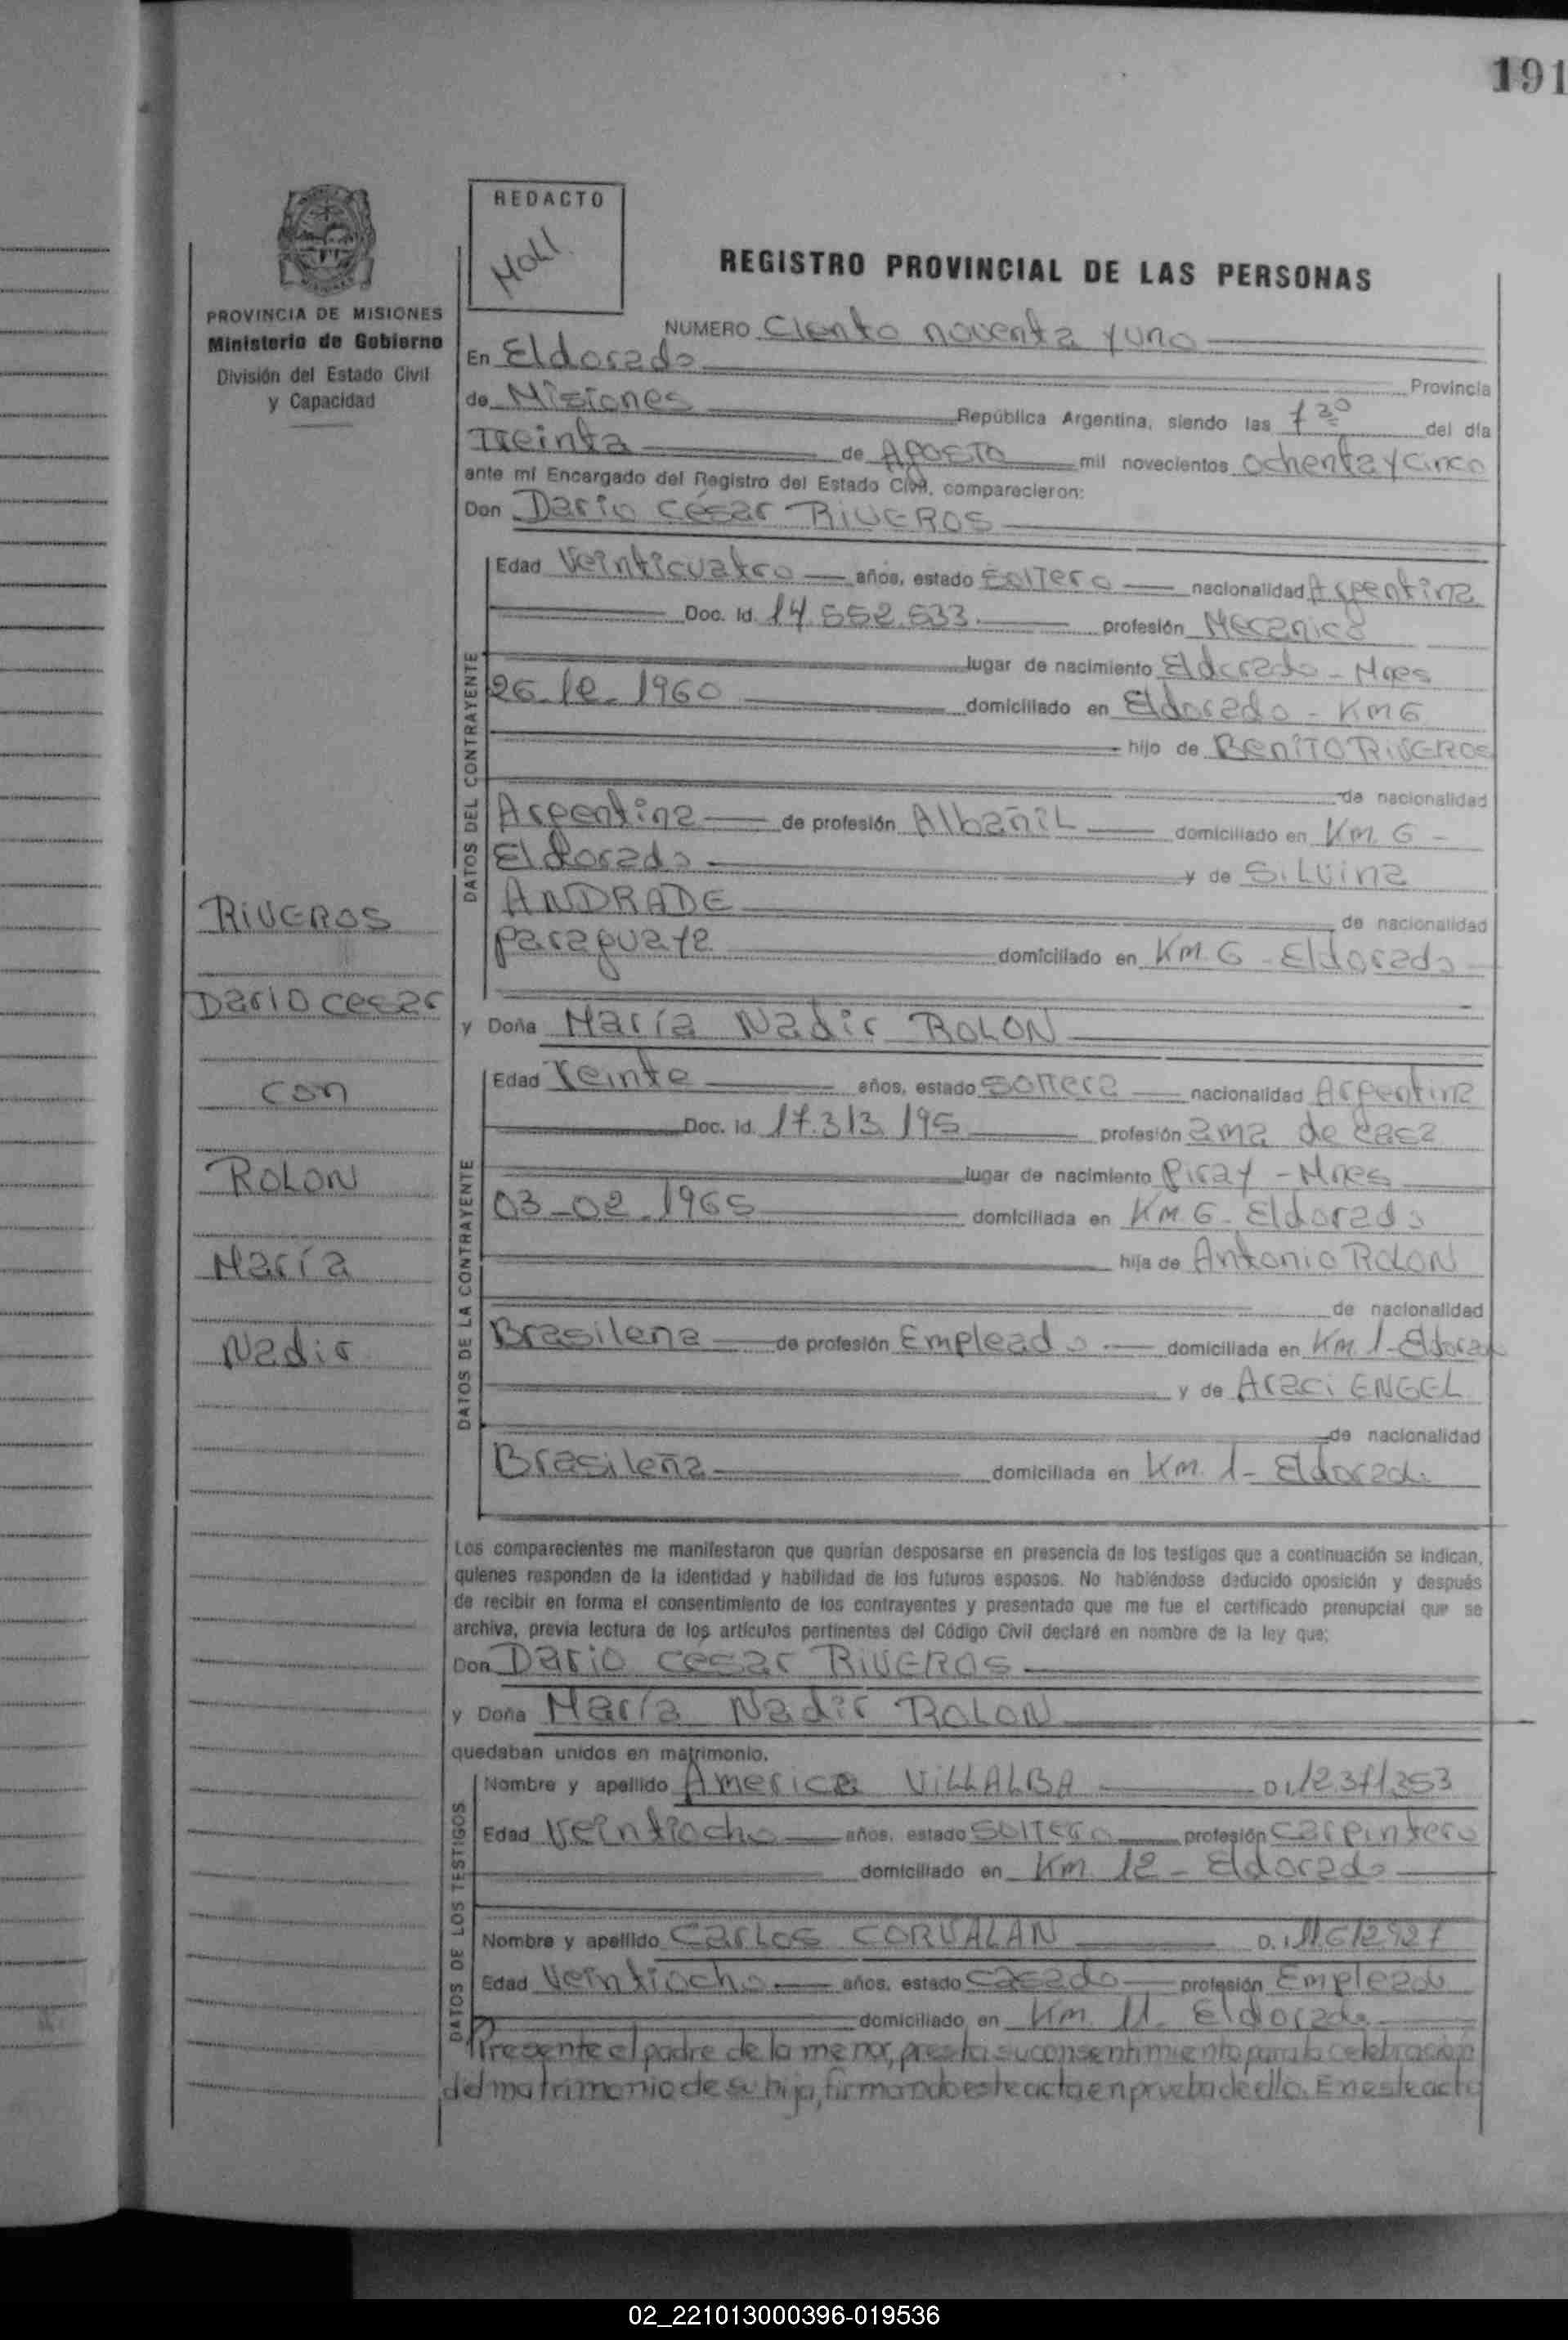 191
REDACTO
MOLI
REGISTRO PROVINCIAL DE LAS PERSONAS
PROVINCIA DE MISIONES
Ministerio de Gobierno
División del Estado Civil
y Capacidad
NUMERO Ciento noventa y uno
En Eldorado Provincia
de Misiones República Argentina, siendo las 7 30 del día
Treinta de Agosto mil novecientos ochenta y cinco
ante mí Encargado del Registro del Estado Civil, comparecieron:
Don Dario César RIVEROS
DATOS DEL CONTRAYENTE
Edad Veinticuatro años, estado soltero nacionalidad Argentina
Doc. Id. 14.552.533 profesión Mecanico
lugar de nacimiento Eldorado - Mnes
26-12-1960 domiciliado en Eldorado - KM 6
hijo de BENITO RIVEROS
de nacionalidad
Argentina de profesión Albañil domiciliado en Km. 6 -
Eldorado y de Silvina
ANDRADE de nacionalidad
paraguaya domiciliado en Km. 6 - Eldorado
RIVEROS
Dario cesar
con
ROLON
María
Nadir
y Doña María Nadir ROLON
DATOS DE LA CONTRAYENTE
Edad Veinte años, estado soltera nacionalidad Argentina
Doc. Id. 17.313.195 profesión ama de casa
lugar de nacimiento Piray - Mnes
03-02-1965 domiciliada en Km. 6 - Eldorado
hija de Antonio ROLON
de nacionalidad
Brasilena de profesión Empleado domiciliada en Km. 1 - Eldorado
y de Araci ENGEL
de nacionalidad
Brasileña domiciliada en Km. 1 - Eldorado
Los comparecientes me manifestaron que querían desposarse en presencia de los testigos que a continuación se indican,
quienes responden de la identidad y habilidad de los futuros esposos. No habiéndose deducido oposición y después
de recibir en forma el consentimiento de los contrayentes y presentado que me fue el certificado prenupcial que se
archiva, previa lectura de los artículos pertinentes del Código Civil declaré en nombre de la ley que:
Don Dario cesar RIVEROS
y Doña María Nadir ROLON
quedaban unidos en matrimonio.
DATOS DE LOS TESTIGOS
Nombre y apellido America VILLALBA D.I. 12.371.353
Edad Veintiocho años, estado soltero profesión carpintero
domiciliado en Km. 12 - Eldorado
Nombre y apellido Carlos CORVALAN D.I. 11.612.927
Edad Veintiocho años, estado casado profesión Empleado
domiciliado en Km. 11. Eldorado
Presente el padre de la menor, presta su consentimiento para la celebración
del matrimonio de su hija, firmando este acta en prueba de ello. En este acto
02_221013000396-019536